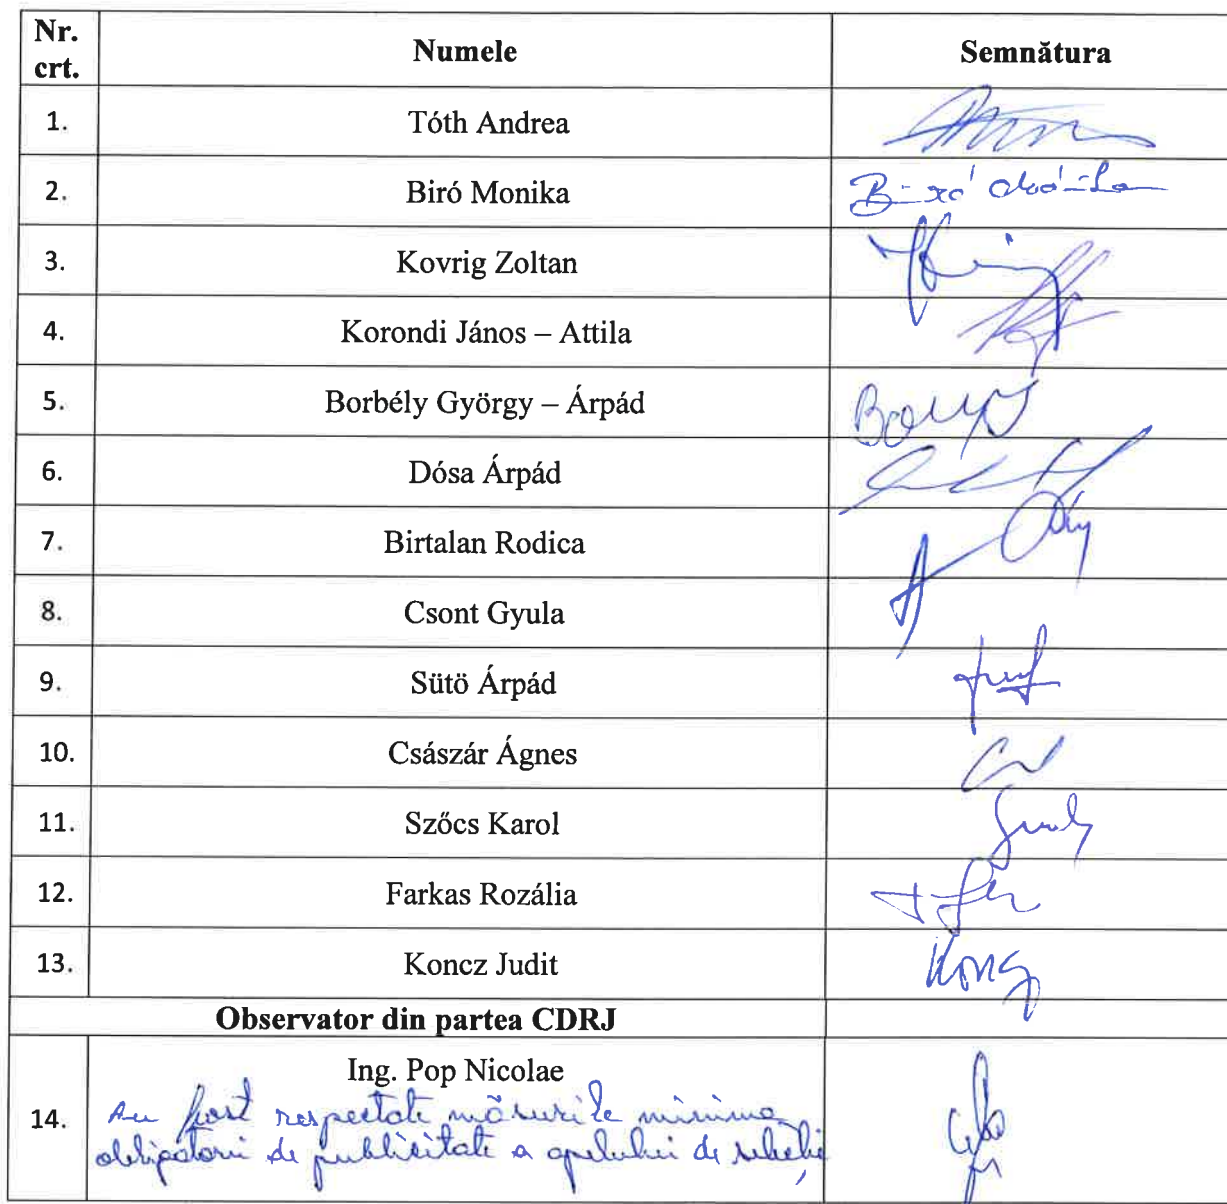 Nr. crt. Numele Semnătura
1. Tóth Andrea
2. Biró Monika
3. Kovrig Zoltan
4. Korondi János – Attila
5. Borbély György – Árpád
6. Dósa Árpád
7. Birtalan Rodica
8. Csont Gyula
9. Sütö Árpád
10. Császár Ágnes
11. Szőcs Karol
12. Farkas Rozália
13. Koncz Judit
Observator din partea CDRJ
Ing. Pop Nicolae
14. Au fost respectate măsurile minime
obligatorii de publicitate a apelului de selecție